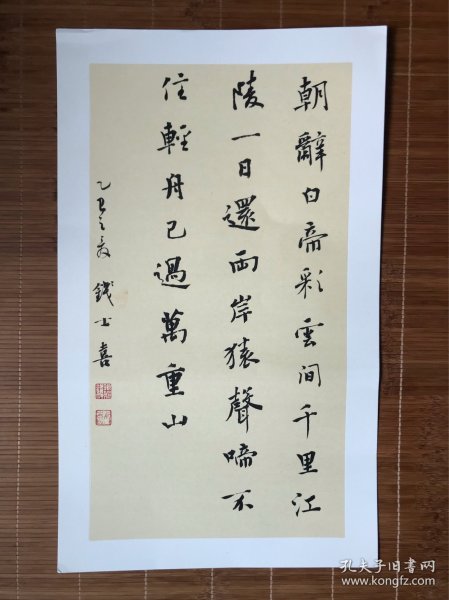 朝辭白帝彩雲間千里江
陵一日還兩岸猿聲啼不
住輕舟已過萬重山
乙丑之夏 錢士喜
孔夫子旧书网
www.kongfz.com